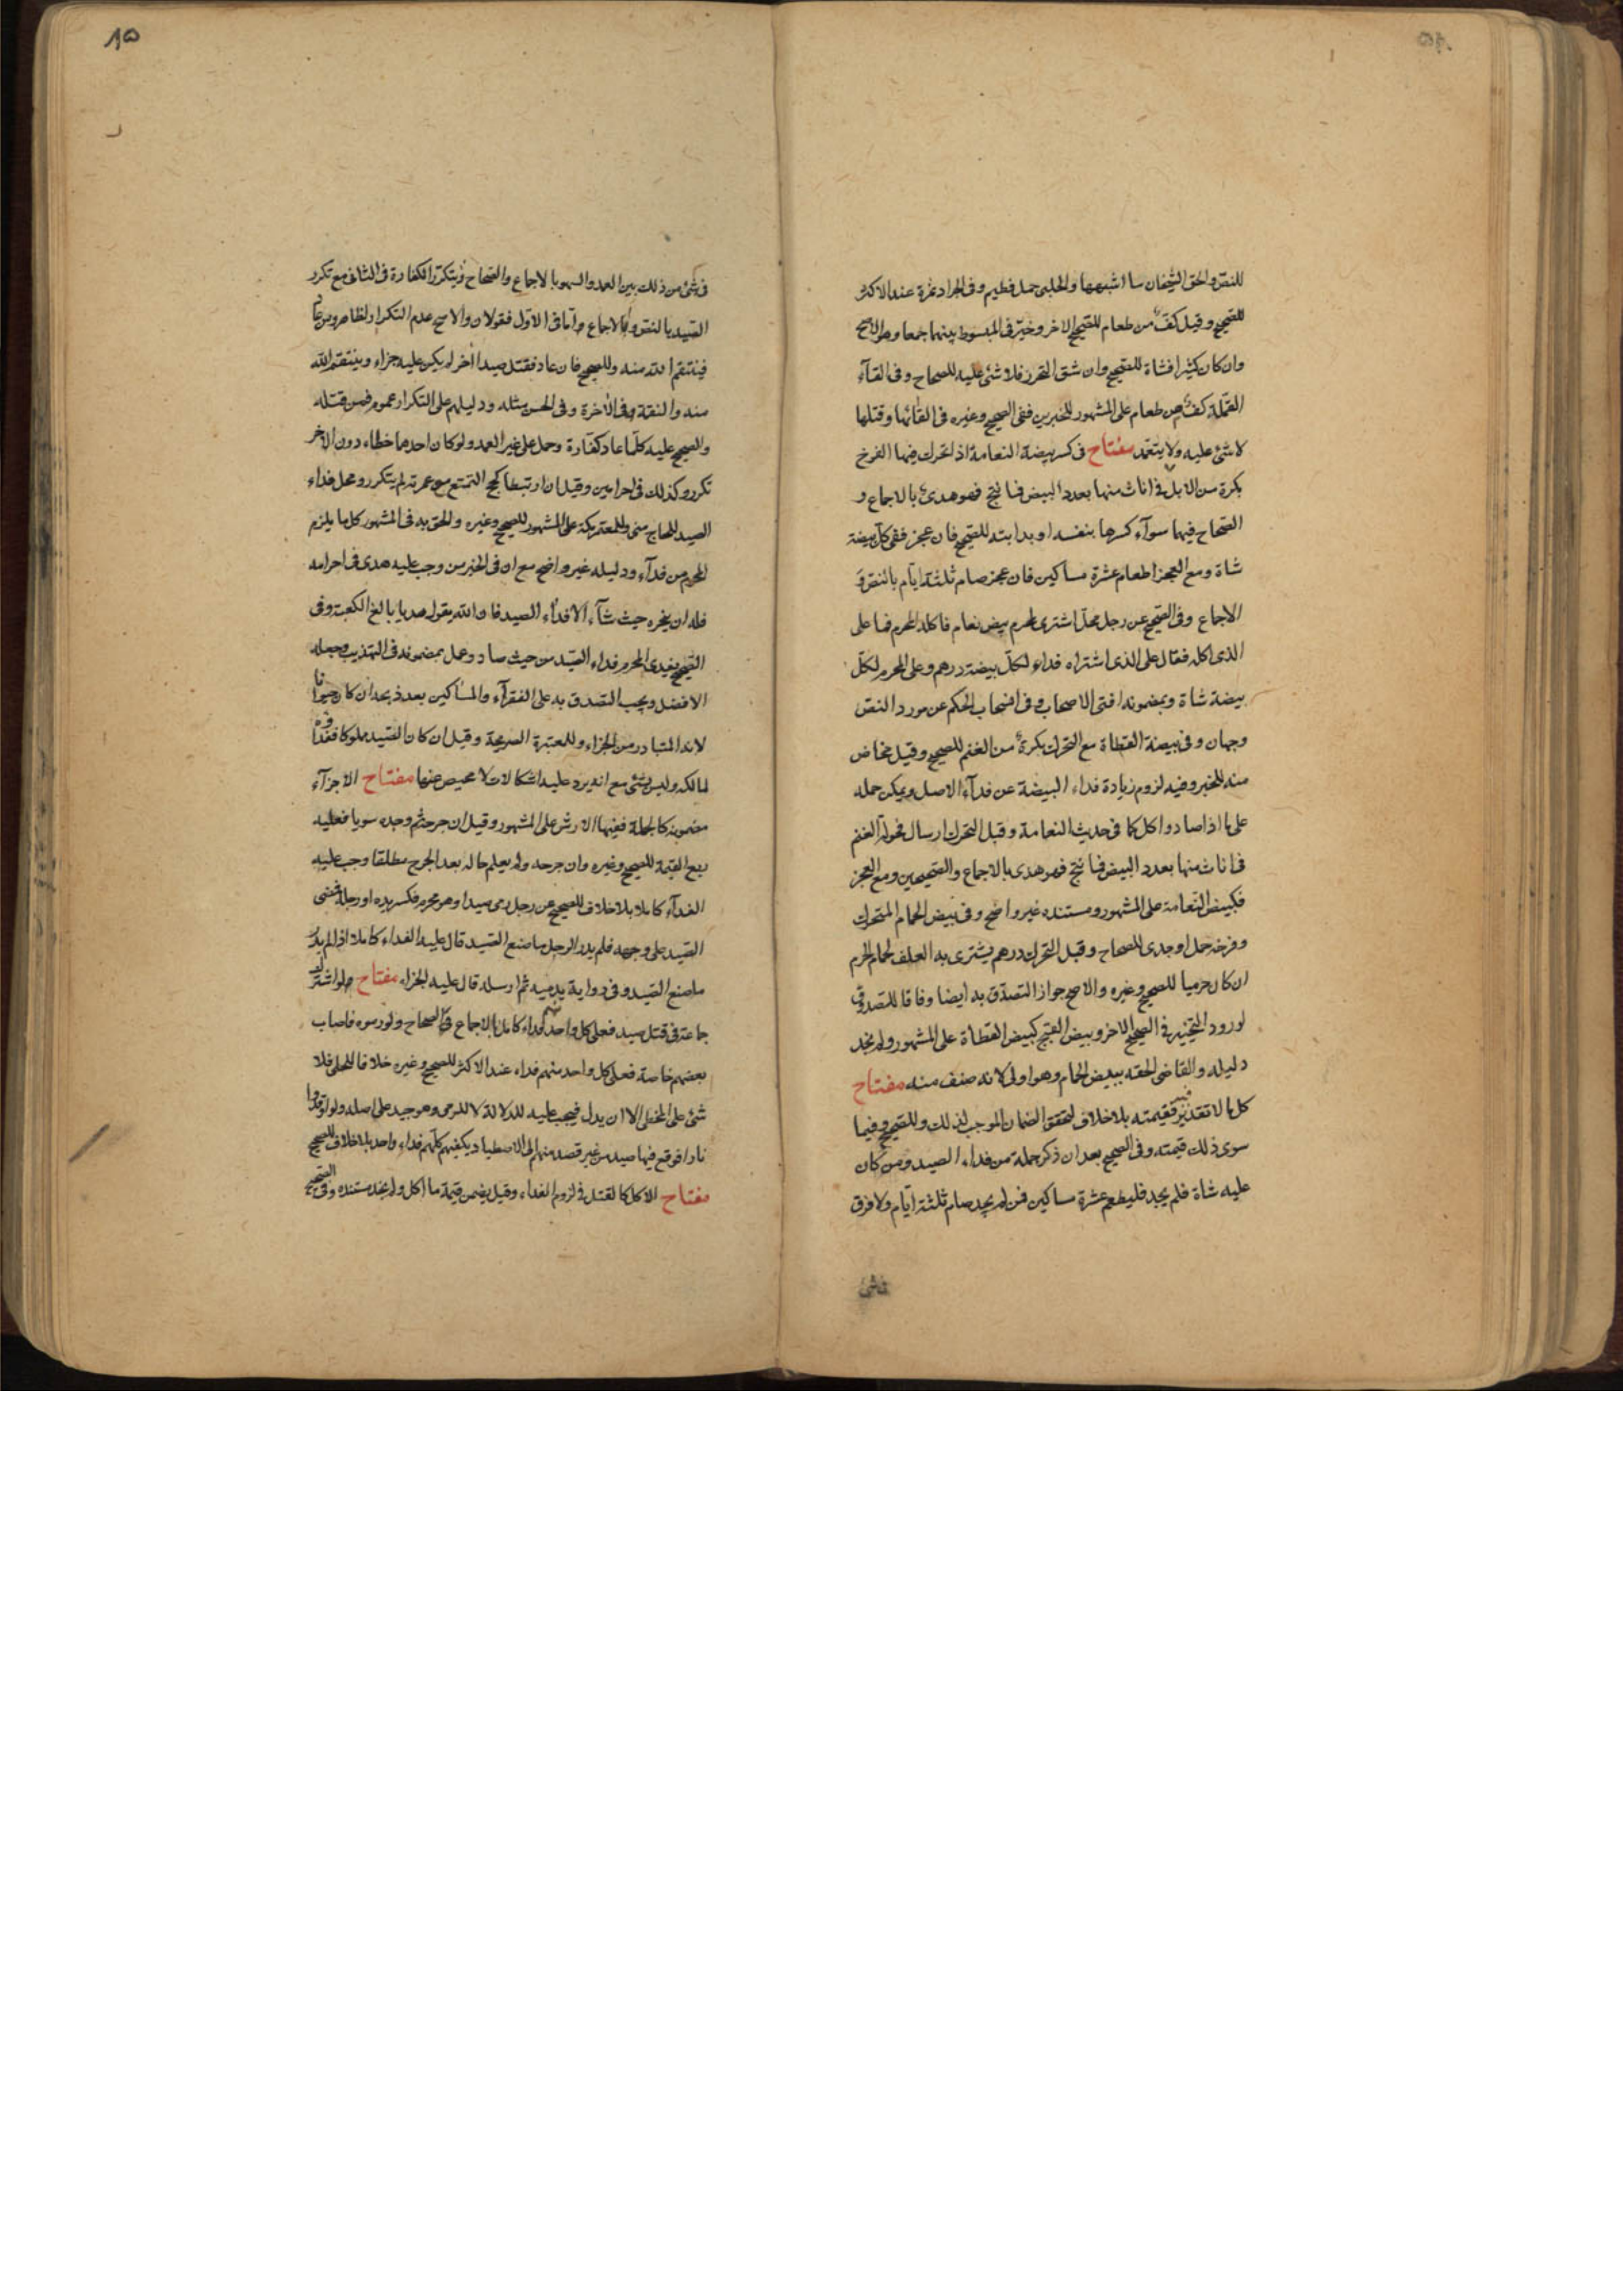 للنص والحق الشيخان ما اشبهها والحلبى حمل فطيم وفى الجراد تمرة عند الاكثر
للصحيح وقيل كف من طعام للصحيح الاخر وخير فى المبسوط بينهما جمعا وهو الاصح
وان كان كثيرا فشاة للصحيح وان شق التحرز فلا شئ عليه للصحاح وفى القآء
القملة كف من طعام على المشهور للخبرين ففى الصحيح وغيره فى القائها وقتلها
لا شئ عليه ولا يتعمد مفتاح فى كسر بيضة النعامة اذا تحرك فيها الفرخ
بكرة من الابل فى اناث منها بعدد البيض فما نتج فهو هدى بالاجماع و
الصحاح فيهما سوآء كسرها بنفسه او بدابته للصحيح فان عجز ففى كل بيضة
شاة ومع العجز اطعام عشرة مساكين فان عجز صام ثلثة ايام بالنص و
الاجماع وفى الصحيح عن رجل محل اشترى لمحرم بيض نعام فاكله المحرم فما على
الذى اكله فقال على الذى اشتراه فداء لكل بيضة درهم وعلى المحرم لكل
بيضة شاة وبمضمونه افتى الاصحاب وفى انسحاب الحكم عن مورد النص
وجهان وفى بيضة القطاة مع التحرك بكرة من الغنم للصحيح وقيل مخاض
منه للخبر وفيه لزوم زيادة فداء البيضة عن فدآء الاصل ويمكن حمله
على ما اذا صاد واكل كما فى حديث النعامة وقبل التحرك ارسال فحولة الغنم
فى اناث منها بعدد البيض فما نتج فهو هدى بالاجماع والصحيحين ومع العجز
فكبيض النعامة على المشهور ومستنده غير واضح وفى بيض الحمام المتحرك
وفرخه حمل او جدى للصحاح وقبل التحرك درهم يشترى به العلف لحمام الحرم
ان كان حرميا للصحيح وغيره والاصح جواز التصدق به ايضا وفاقا للصدوق
لورود التخيير فى الصحيح الاخر وبيض القبج كبيض القطاة على المشهور ولم نجد
دليله والقاضى الحقه ببيض الحمام وهو اولى لانه صنف منه مفتاح
كل ما لا تقدير فيه فقيمته بلا خلاف لتحقق الضمان الموجب لذلك وللصحيح وفيما
سوى ذلك قيمته وفى الصحيح بعد ان ذكر جملة من فداء الصيد ومن كان
عليه شاة فلم يجد فليطعم عشرة مساكين فمن لم يجد صام ثلثة ايام ولا فرق
فى شئ
١٥
فى شئ من ذلك بين العمد والسهو بالاجماع والصحاح ويتكرر الكفارة فى الثانى مع تكرر
الصيد بالنص والاجماع واما فى الاول فقولان والاصح عدم التكرار لظاهر ومن عاد
فينتقم الله منه وللصحيح فان عاد فقتل صيدا اخر لم يكن عليه جزاء وينتقم الله
منه والنقمة فى الاخرة وفى الحسن مثله ودليلهم على التكرار عموم فمن قتله
والصحيح عليه كلما عاد كفارة وحمل على غير العمد ولو كان احدهما خطاء دون الاخر
تكرر وكذلك فى احرامين وقيل ان ارتبطا كحج التمتع مع عمرته لم يتكرر ومحل فداء
الصيد للحاج منى وللمعتمر مكة على المشهور للصحيح وغيره والحق به فى المشهور كل ما يلزم
المحرم من فدآء ودليله غير واضح مع ان فى الخبر من وجب عليه هدى فى احرامه
فله ان ينحره حيث شآء الا فداء الصيد فان الله يقول هديا بالغ الكعبة وفى
الصحيح يفدى المحرم فداء الصيد من حيث صاد وعمل بمضمونه فى التهذيب وجعله
الافضل ويجب التصدق به على الفقرآء والمساكين بعد ذبحه ان كان حيوانا
لانه المتبادر من الجزاء وللمعتبرة الصريحة وقيل ان كان الصيد مملوكا ففداؤه
لمالكه وليس بشئ مع انه يرد عليه اشكالات لا محيص عنها مفتاح الاجزآء
مضمونة كالجملة ففيها الارش على المشهور وقيل ان جرحه ثم وجده سويا فعليه
ربع القيمة للصحيح وغيره وان جرحه ولم يعلم حاله بعد الجرح مطلقا وجب عليه
الفدآء كاملا بلا خلاف للصحيح عن رجل رمى صيدا وهو محرم فكسر يده او رجله فمضى
الصيد على وجهه فلم يدر الرجل ما صنع الصيد قال عليه الفداء كاملا اذا لم يدر
ما صنع الصيد وفى رواية يدميه ثم ارسله قال عليه الجزاء مفتاح ولو اشترك
جماعة فى قتل صيد فعلى كل واحد منهم فداء كامل بالاجماع والصحاح ولو رموه فاصاب
بعضهم خاصة فعلى كل واحد منهم فداء عند الاكثر للصحيح وغيره خلافا للحلى فلا
شئ على المخطى الا ان يدل فيجب عليه للدلالة لا للرمى وهو جيد على اصله ولو اوقدوا
نارا فوقع فيها صيد من غير قصد منهم الى الاصطياد يكفيهم كلهم فداء واحد بلا خلاف للصحيح
مفتاح الاكل كالقتل فى لزوم الفداء وقيل يضمن قيمة ما اكل ولم نجد مستنده وفى الصحيح